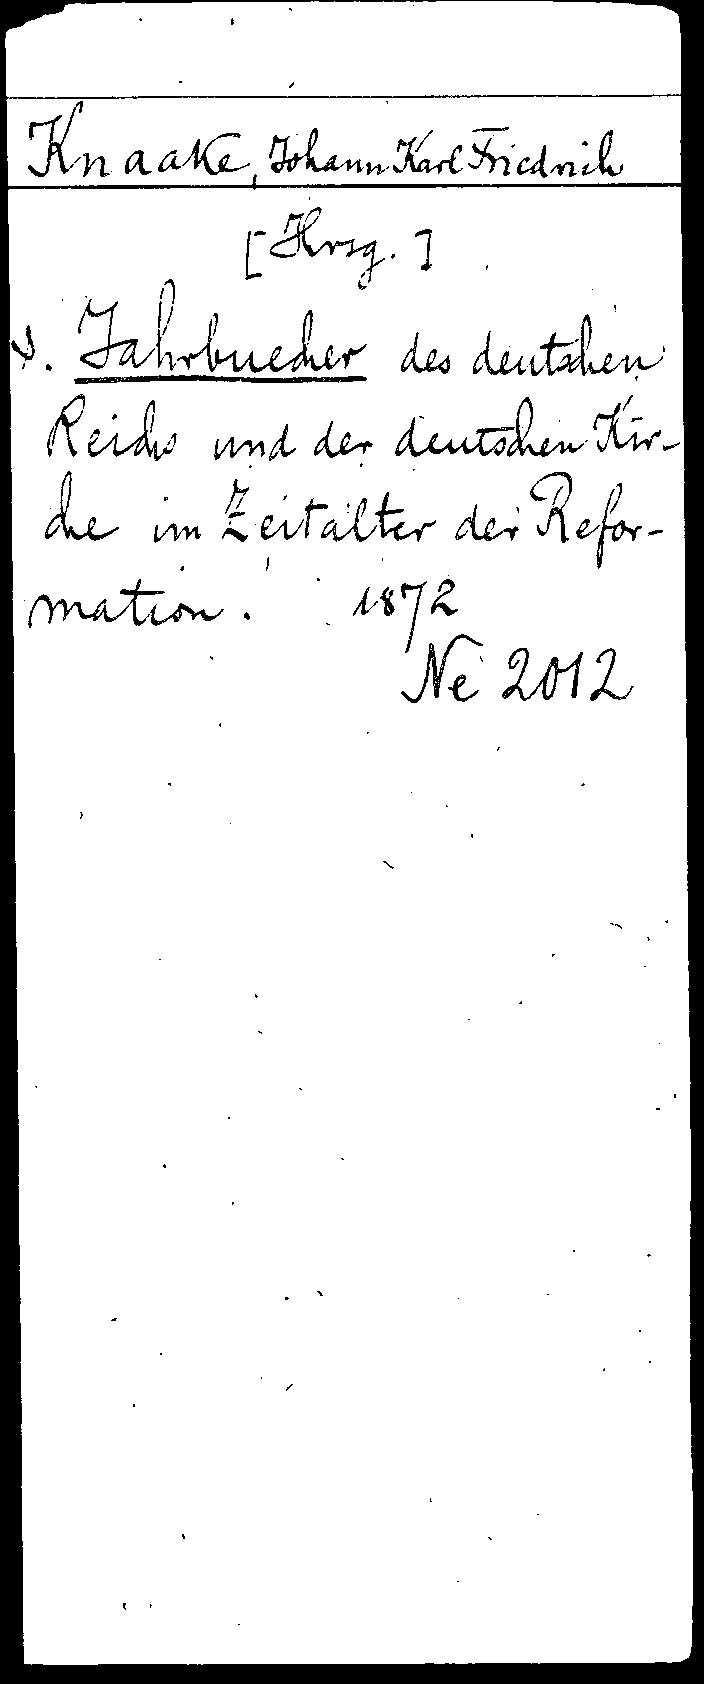 Knaake, Johann Karl Friedrich
[Hrsg.]
s. Jahrbuecher des deutschen
Reichs und der deutschen Kir-
che im Zeitalter der Refor-
mation. 1872
Ne 2012